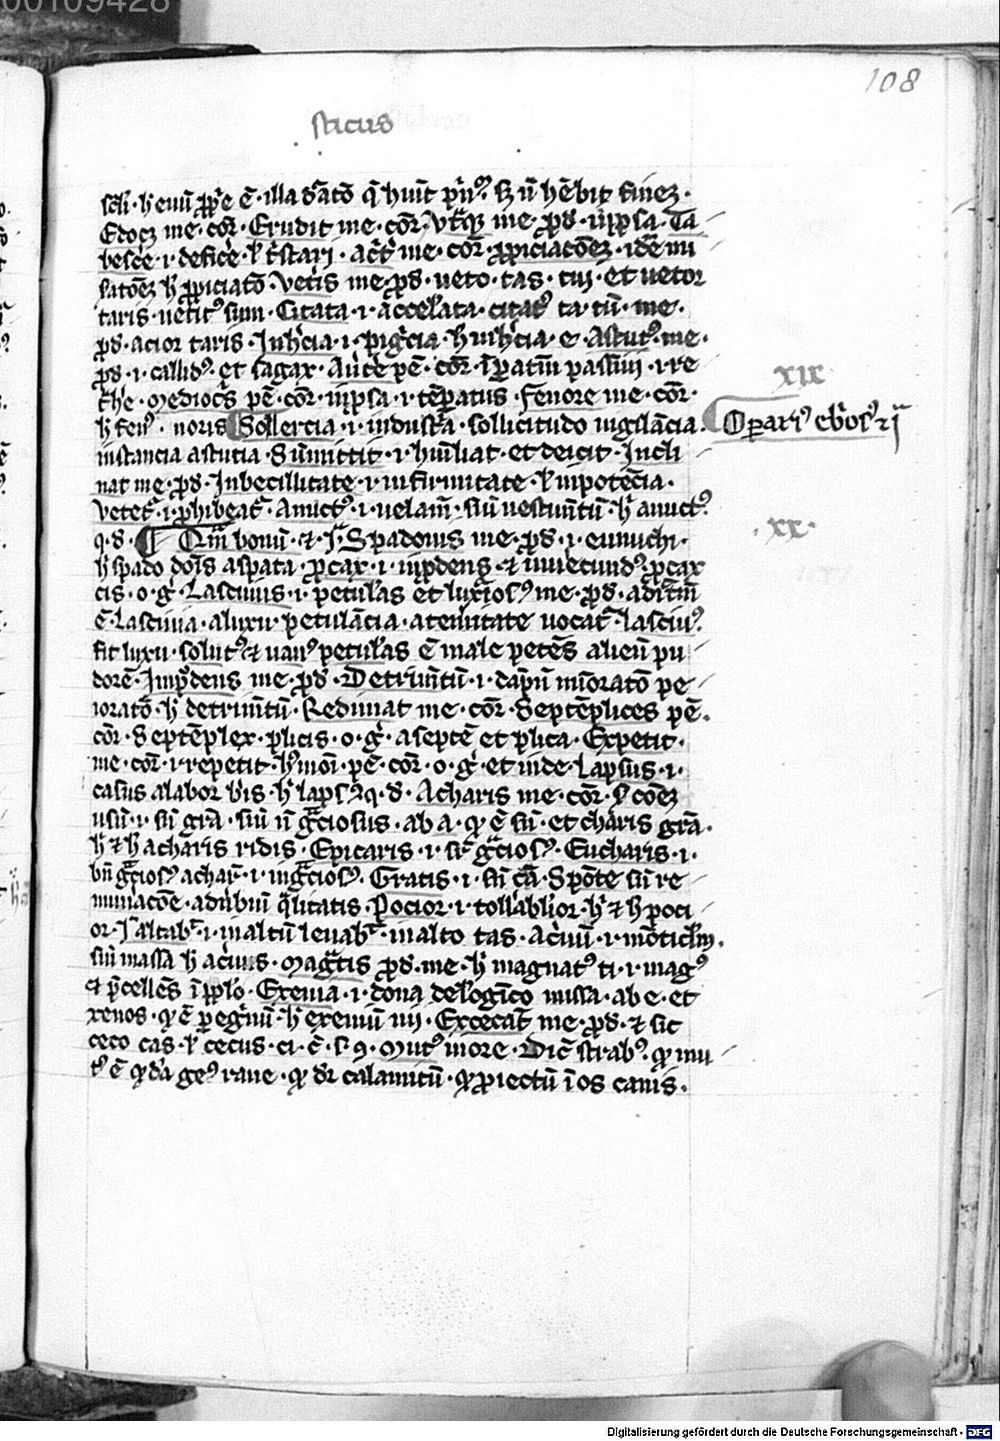 00109428
108
sticus
scli · h euū ꝓp̄e ē · illa dāto q̄ huīt p̄nꝰ · sꝫ ñ hēbit finez ·
Edocꝫ me · cor̄ · Erudit me · cor̄ · me · ꝓd ·
besc̄e · i · defic̄e · me · cor̄ · ꝓpiciacōez · idē mi
satōez h ꝓpiciatō · Vet̄is me · ꝓd · ueto · tas · tui · et uetor
taris · uetitꝰ sum · Citata · i · accel̄ata · citatꝰ ta · tū · me ·
ꝓd · acior taris · Inh̄cia · i · pigͥcia · h inh̄cia · e · Astutꝰ · me ·
ꝓd · i · callidꝰ · et sagax · pē · cor̄ · passim · i · re
Mediocͥs pē · cor̄ · i · tēpatus · Fenore me · cor̄ ·
h fenꝰ · noris Sollercia · i · industͥa · sollicitudo uigilācia ·
instancia astucia · Sūmittit · i · hum̄liat · et deicit · Incli
nat me · ꝓd · Inbecillitate · i · infirmitate · l̄ inpotēcia ·
Vetetͬ · i · ꝓhibeatͬ · Amictꝰ · i · uelam̄ · siū uestim̄tū · h̄ amictꝰ ·
q · d · ¶ Qm̄ bonū · Spadonis me · ꝓd · i · eunuchi ·
h spado dois̄ aspata · ꝓcax · i · inpdens · et inuerecundꝰ · ꝓcax
cis · o · g̊ · Lasciuus · i · petul̄as et luxͥosꝰ me · ꝓd ·
ē Lasciuia · a luxu · petulācia · a teneritate uocatͬ · lasciuꝰ
fit luxu · solutꝰ et uanꝰ petul̄as ē male petēs alienū pu
dorē · Inpͥdens me · ꝓd · Detrim̄tū · i · dāpnū minoratō pe
ioratō · h detrim̄tū · Rediuiat me · cor̄ · Septēplices pē ·
cor̄ · Septēplex · plicis · o · g̊ · a septē et plica · Expetit ·
me · cor̄ · i · repetit · pē · cor̄ · o · g̊ · et inde · Lapsus · i ·
casus a labor bͥis · h̄ lapsꝰ q · d · Acharis me · cor̄ ·
usū · i · sn̄ grā · siū nͦ gͣciosus · ab a · qͩ ē sn̄ · et charis grā ·
h̄ et h acharis ridis · Epicaris · i · gͣciosꝰ · Eucharis · i ·
bn̄ gͣciosꝰ acharͥ · i · ingͣciosꝰ · Gratis · i · sn̄ cā · Spōte sn̄ re
munacōe · adūbiū qͣlitatis · Pocior · i · toll̄abilior · h̄ et h poci
or · Īaltabtͬ · i · in altū leuabtͬ · in alto tas · Acͥuū · i · mōticl̄m ·
siū massa h acͥuus · Magͣtis ꝓd · me · h̄ magnatꝰ ti · i · magꝰ
et p̄cellēs ī pplo · Exenia · i · dona de lōgīco missa · ab e · et
xenos · qͩ ē pegͥnū · h̄ exeniū nii · Excecat̄ me · ꝓd · et sic
ceco cas · l̄ cecus · ci · ē · s · 9 · Mutꝰ in ore · Dic̄ strabꝰ · qͩ mu
tꝰ ē qͩdā genꝰ rane · qͩ dr̄ calamitū · qͩ ꝓiectū ī os canis ·
xix
Oparͥꝰ ebͥosꝰ
· xx ·
Digitalisierung gefördert durch die Deutsche Forschungsgemeinschaft - DFG